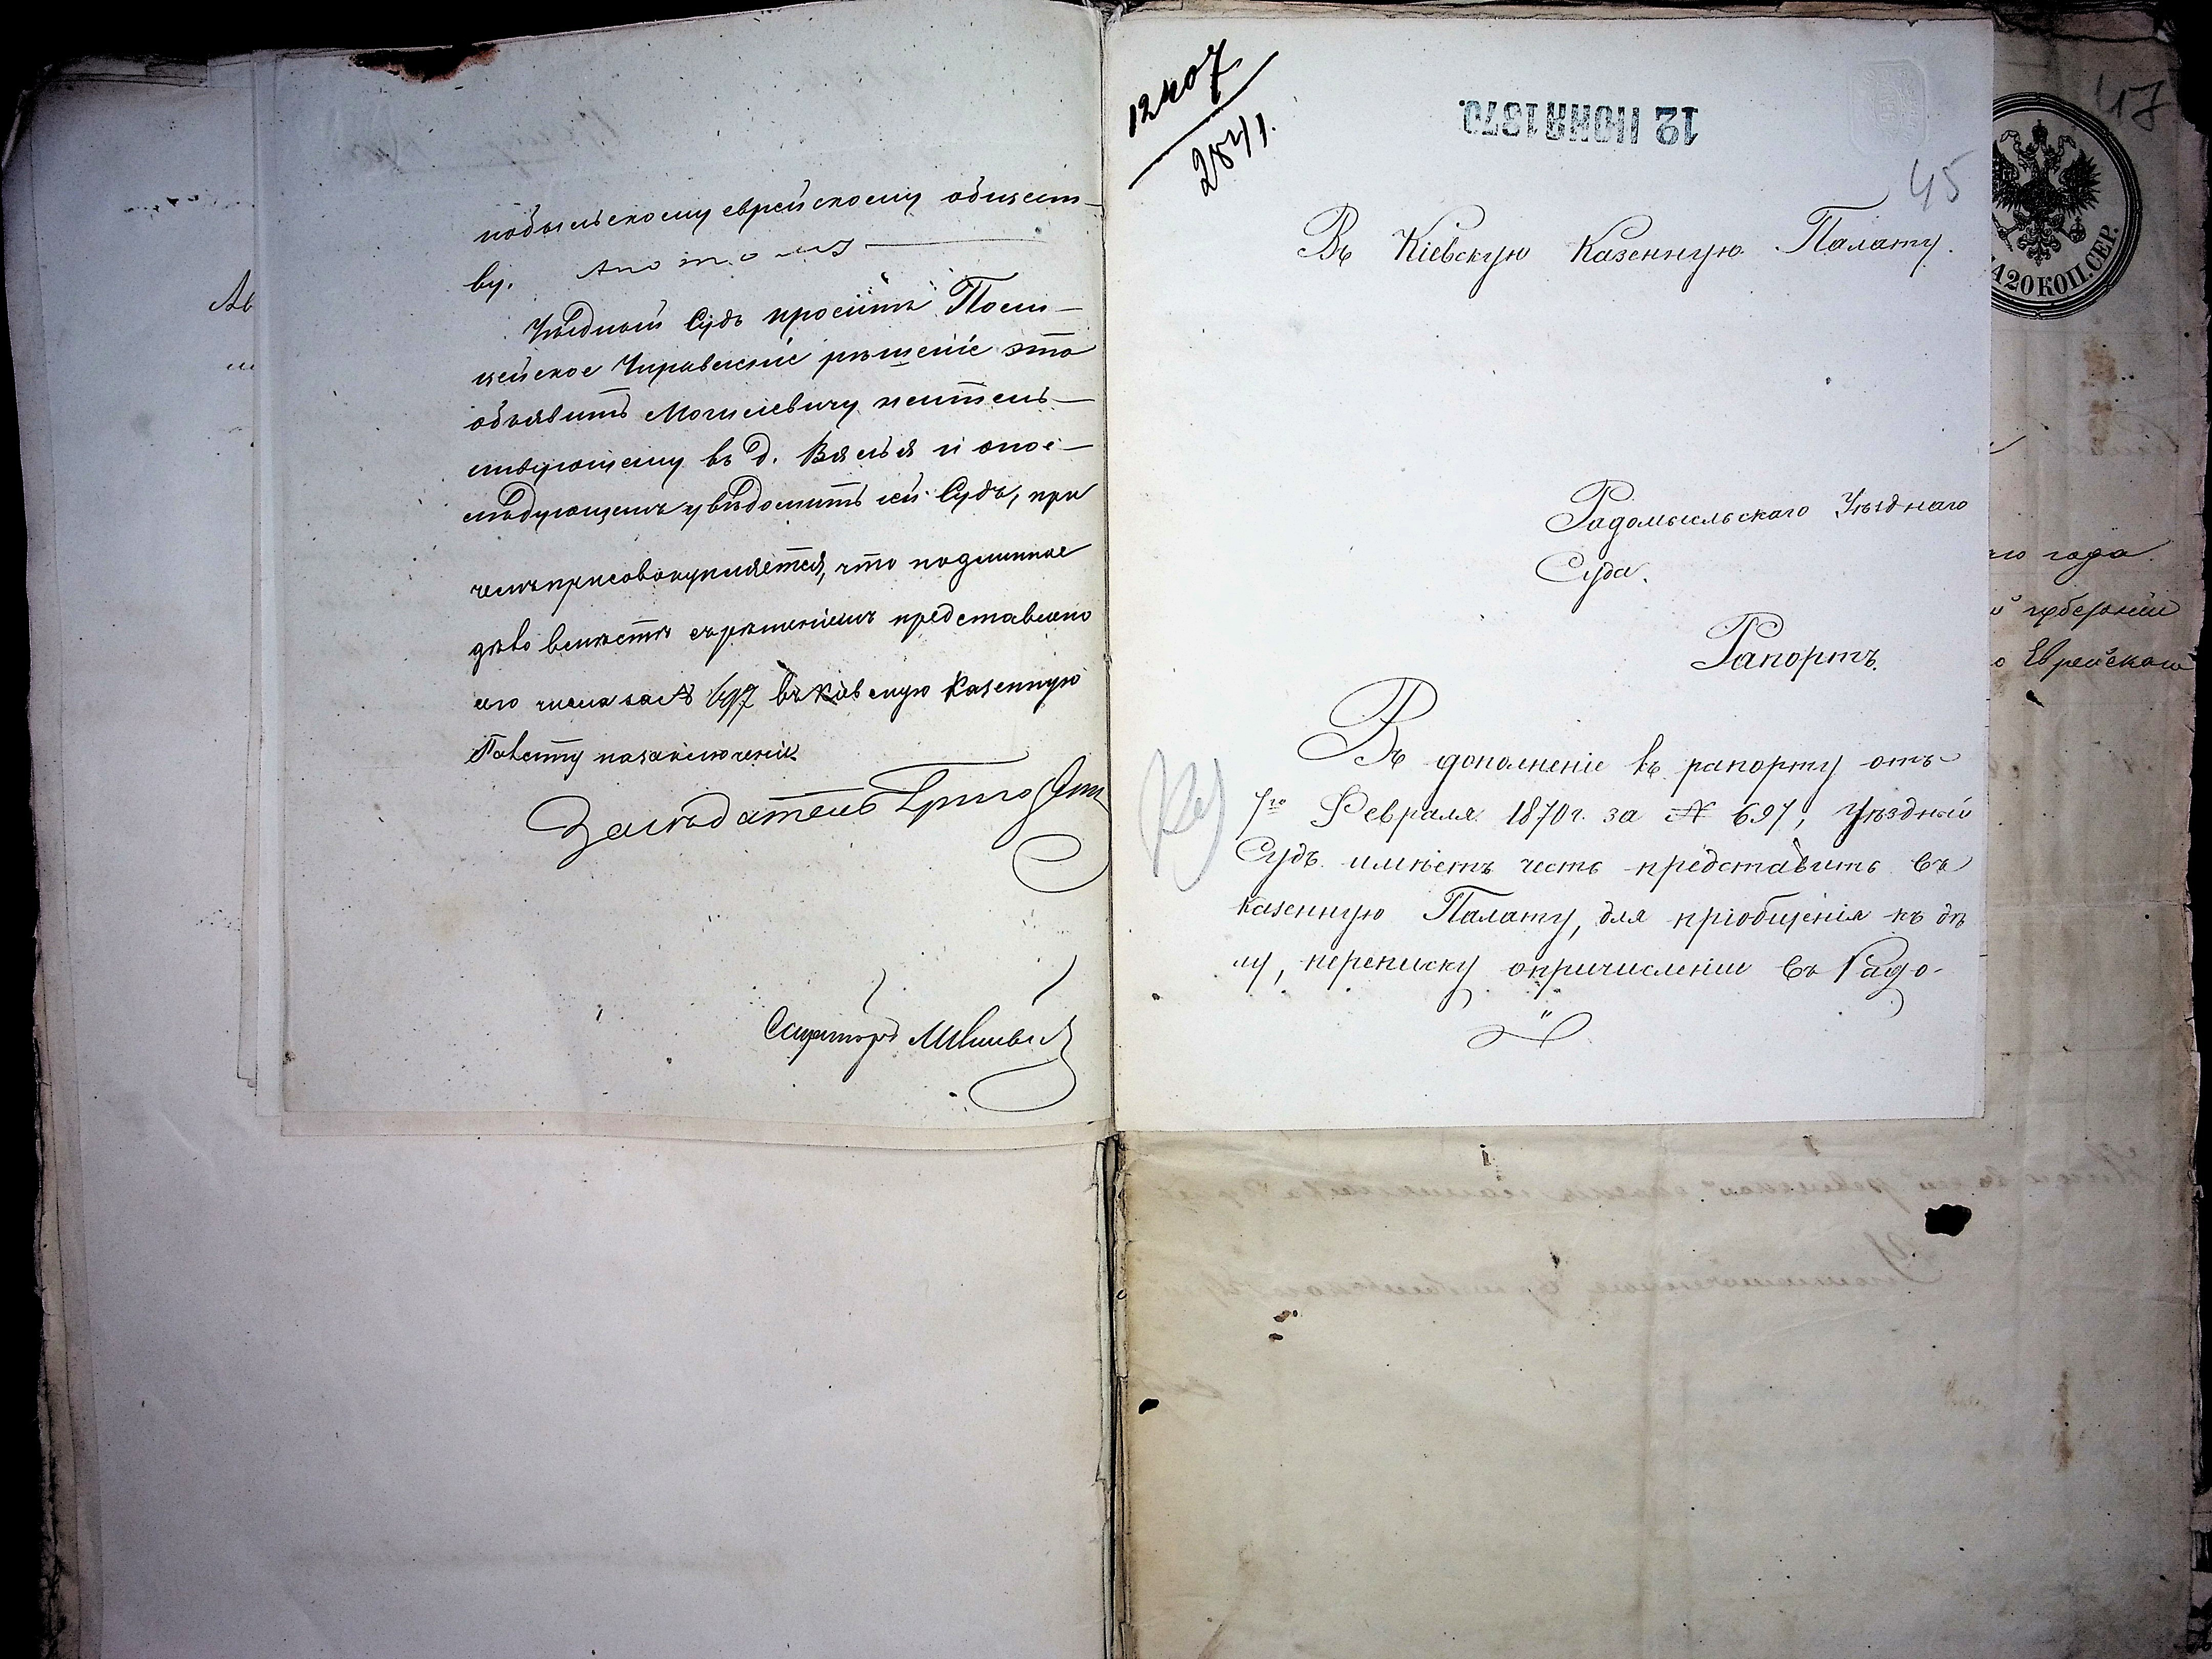 нобыльскому еврейскому общест-
ву. А потому
Уѣздный Судъ проситъ Поли-
цейское Управленіе рѣшеніе это
объявить Могилевичу жител-
ствующему въ д. Вялья и опос-
лѣдующемъ увѣдомить сей Судъ, при
чемъ присовокупляется, что подлинное
дѣло вмѣстѣ съ рѣшеніемъ представлено
сего числа за № 697 въ Кіевскую Казенную
Палату на заключеніе.
Засѣдатель
Секретарь
12407
2841.
12 ІЮНЯ 1870.
45
Въ Кіевскую Казенную Палату.
Радомысльскаго Уѣзднаго
Суда.
Рапортъ.
Въ дополненіе къ рапорту отъ
7го Февраля 1870 г. за № 697, Уѣздный
Судъ имѣетъ честь представить въ
Казенную Палату, для пріобщенія къ дѣ
лу, переписку о причисленіи въ Радо-
17
20 КОП. СЕР.
го года
губерніи
Еврейскаго